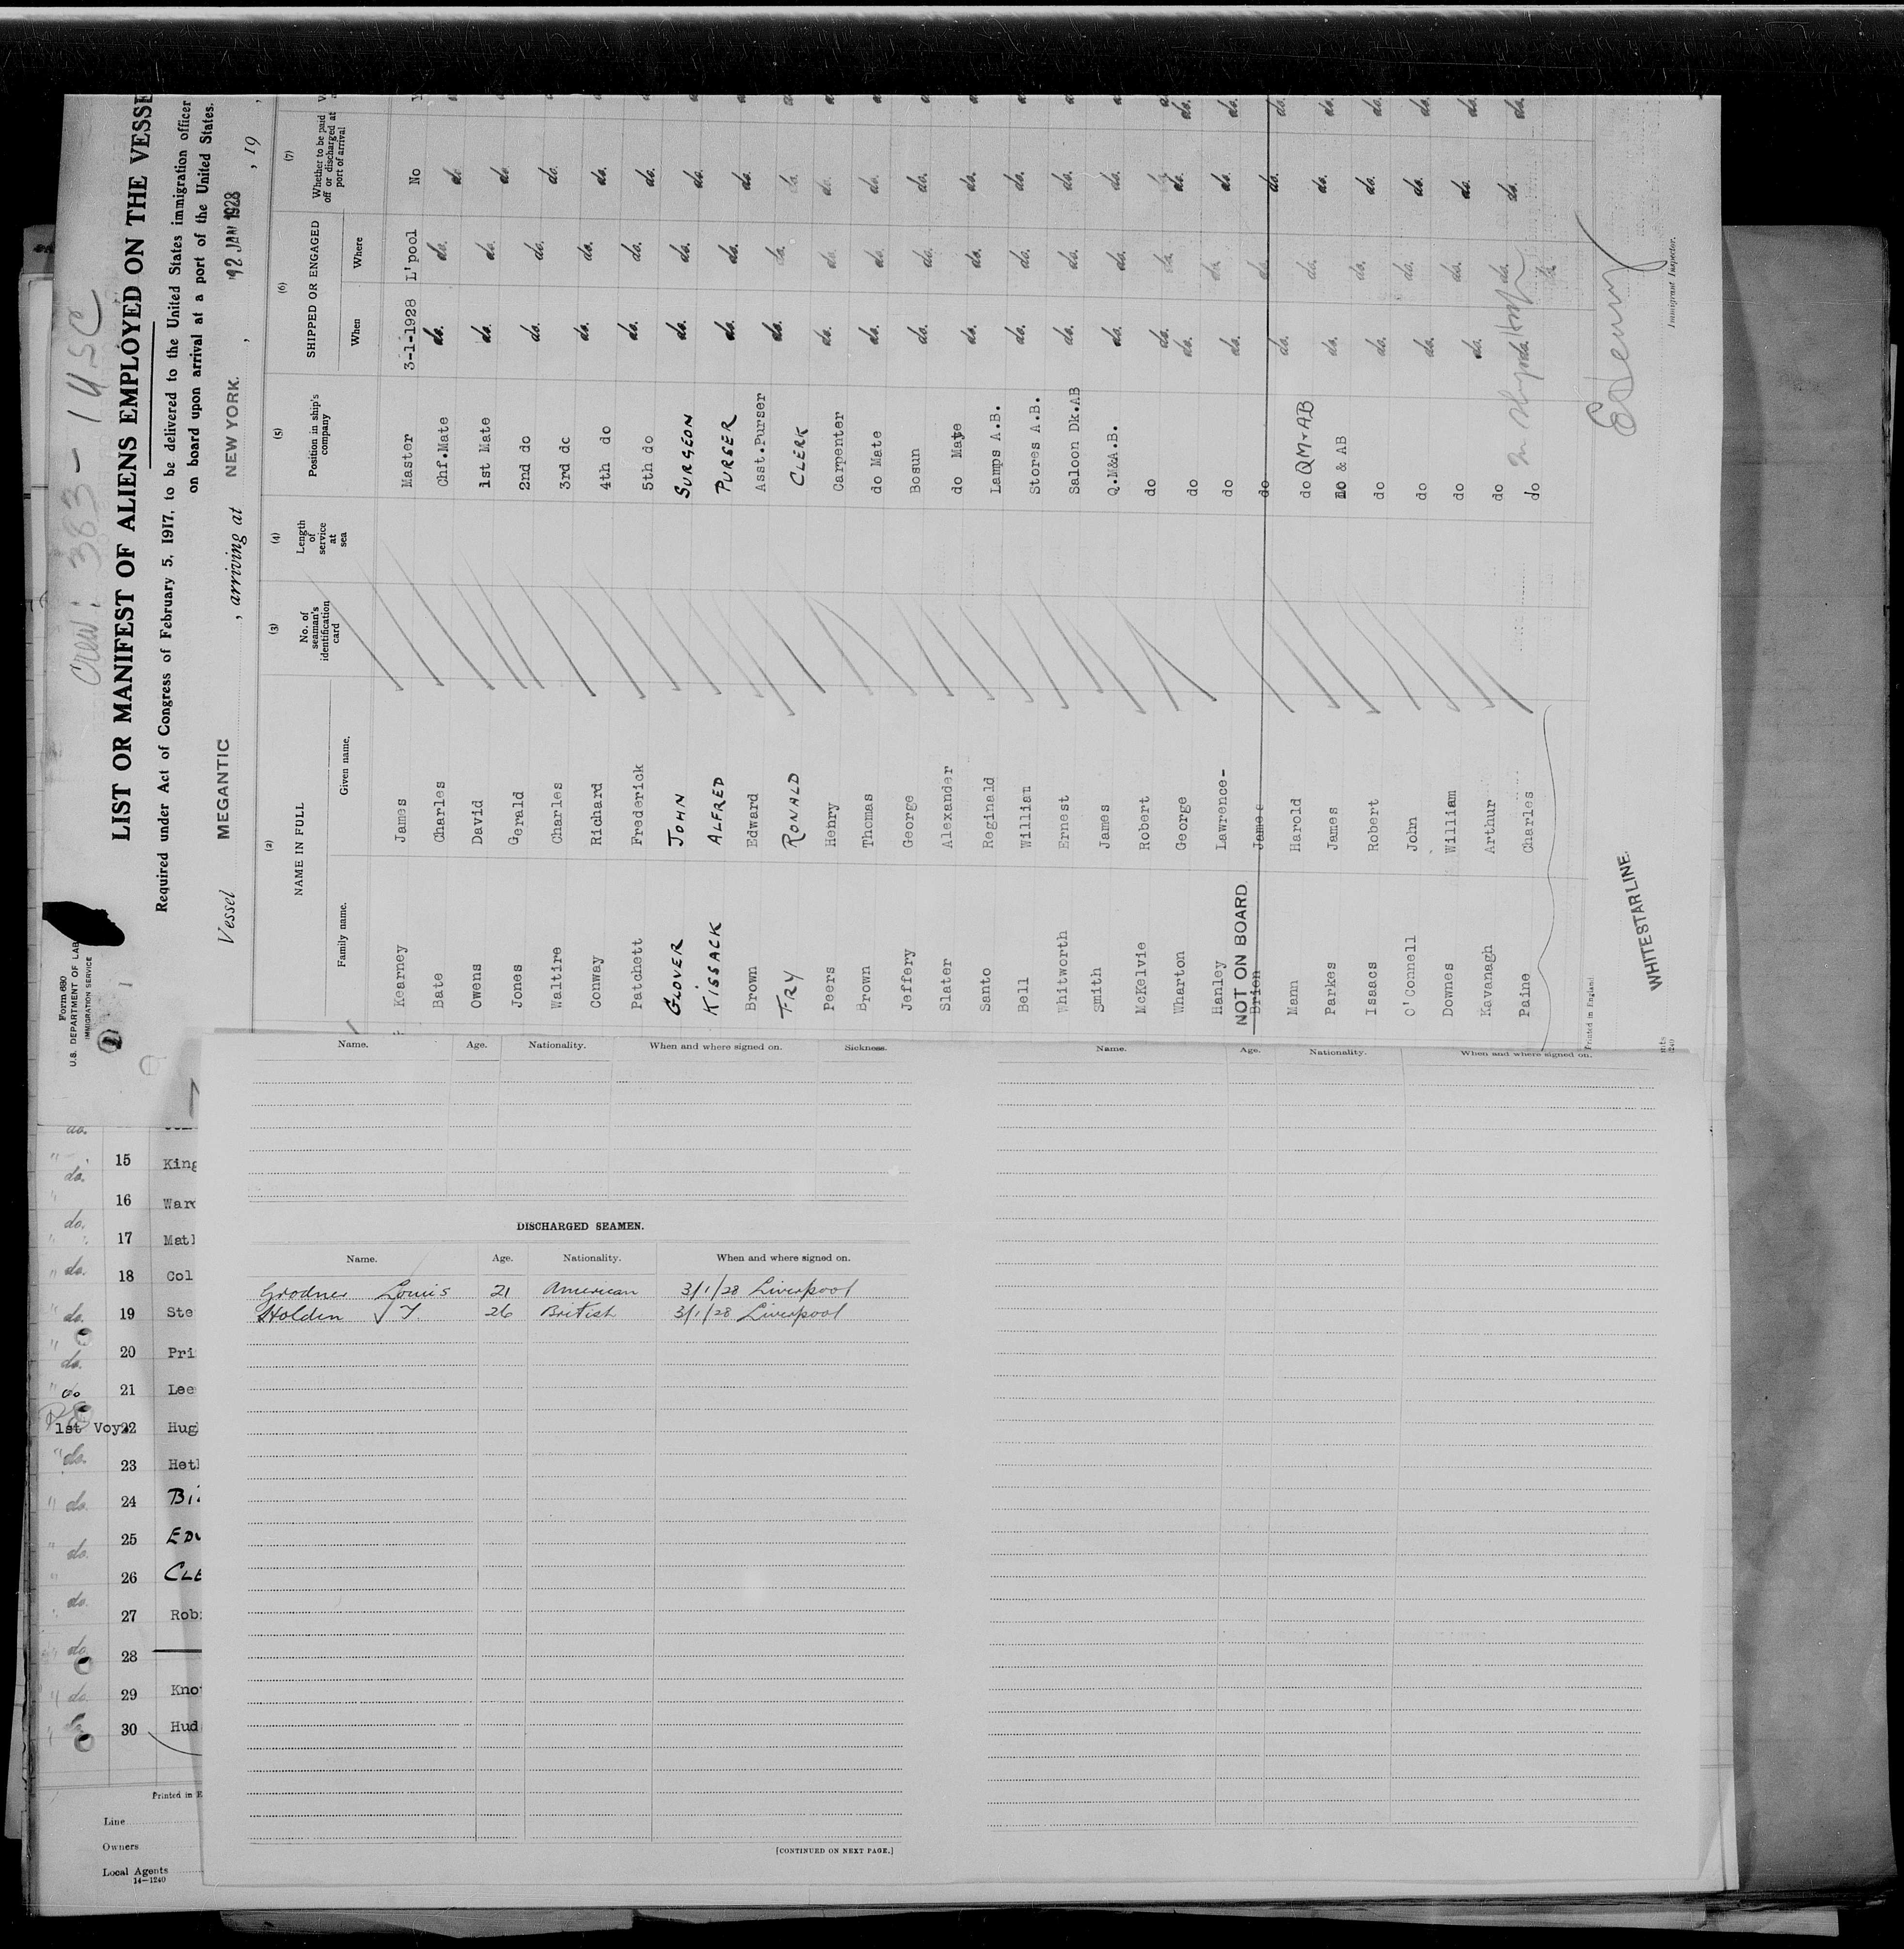 Crew: 383 - 1 U.S.C
Form 680
U.S. DEPARTMENT OF LAB
IMMIGRATION SERVICE
LIST OR MANIFEST OF ALIENS EMPLOYED ON THE VESSE
Required under Act of Congress of February 5, 1917, to be delivered to the United States immigration officer
on board upon arrival at a port of the United States.
Vessel MEGANTIC , arriving at NEW YORK. , 12 JAN 1928 , 19 ,
(2) (3) (4) (5) (6) (7)
NAME IN FULL No. of seaman's identification card Length of service at sea Position in ship's company SHIPPED OR ENGAGED Whether to be paid off or discharged at port of arrival
Family name. Given name. When Where
Kearney James Master 3-1-1928 L'pool No
Bate Charles Chf.Mate do. do. do.
Owens David 1st Mate do. do. do.
Jones Gerald 2nd do do. do. do.
Waltire Charles 3rd dc do. do. do.
Conway Richard 4th do do. do. do.
Patchett Frederick 5th do do. do. do.
GLOVER JOHN SURGEON do. do. do.
KISSACK ALFRED PURSER do. do. do.
Brown Edward Asst.Purser do. do. do.
TRY RONALD CLERK do. do. do.
Peers Henry Carpenter do. do. do.
Brown Thomas do Mate do. do. do.
Jeffery George Bosun do. do. do.
Slater Alexander do Mate do. do. do.
Santo Reginald Lamps A.B. do. do. do.
Bell Willian Stores A.B. do. do. do.
Whitworth Ernest Saloon Dk.AB do. do. do.
Smith James Q.M&A.B. do. do. do.
McKelvie Robert do do. do. do.
Wharton George do do. do. do.
Hanley Lawrence- do do. do. do.
NOT ON BOARD.
Brien James do do. do. do.
Mann Harold do QM+AB do. do. do.
Parkes James do & AB do. do. do.
Isaacs Robert do do. do. do.
O'Connell John do do. do. do.
Downes William do do. do. do.
Kavanagh Arthur do do. do. do.
Paine Charles do do. do. do.
Printed in England
WHITE STAR LINE.
Immigrant Inspector.
Name. Age. Nationality. When and where signed on. Sickness.
Name. Age. Nationality. When and where signed on.
DISCHARGED SEAMEN.
Name. Age. Nationality. When and where signed on.
Grodner Louis 21 American 3/1/28 Liverpool
Holden T. 26 British 3/1/28 Liverpool
[CONTINUED ON NEXT PAGE.]
do. 15 King
do. 16 Ward
do. 17 Math
do. 18 Col
do. 19 Ste
do. 20 Pri
do 21 Lee
1st Voy. 22 Hug
do. 23 Heth
do. 24
do. 25 EDW
26 CLE
do. 27 Rob
do. 28
do. 29 Kno
do. 30 Hud
Printed in E
Line
Owners
Local Agents
14-1240